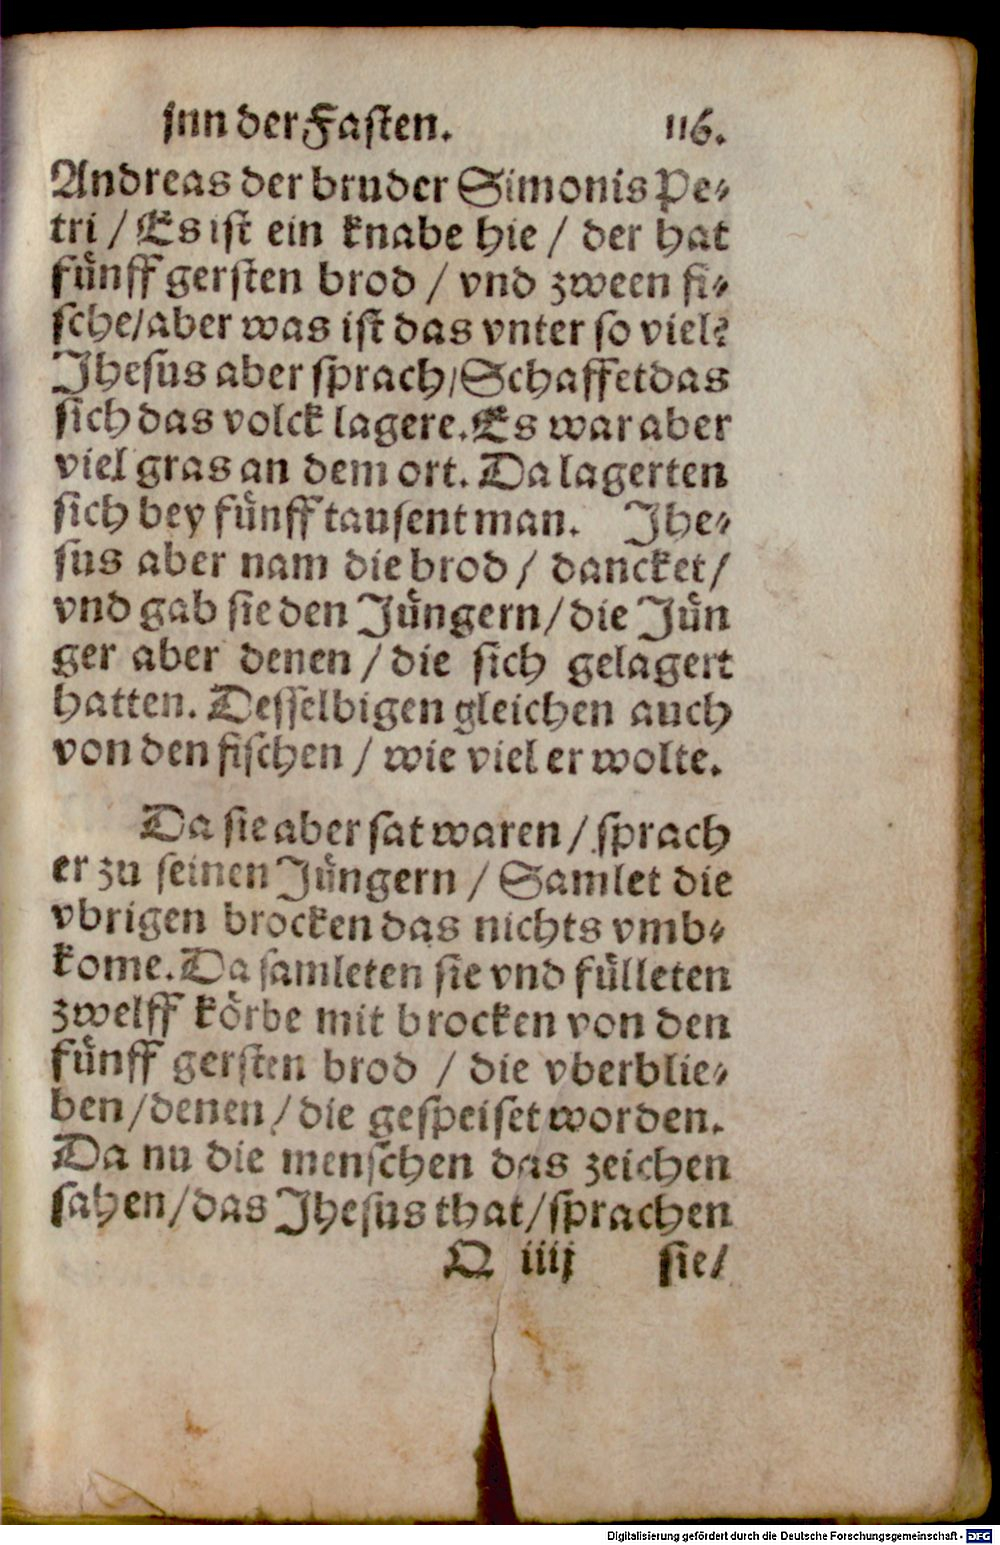 jnn der Fasten. 116.
Andreas der bruder Simonis Pe⸗
tri / Es ist ein knabe hie / der hat
fuͤnff gersten brod / vnd zween fi⸗
sche/aber was ist das vnter so viel?
Jhesus aber sprach/Schaffet das
sich das volck lagere. Es war aber
viel gras an dem ort. Da lagerten
sich bey fuͤnff tausent man. Jhe⸗
sus aber nam die brod / dancket /
vnd gab sie den Juͤngern / die Juͤn
ger aber denen / die sich gelagert
hatten. Desselbigen gleichen auch
von den fischen / wie viel er wolte.
Da sie aber sat waren / sprach
er zu seinen Juͤngern / Samlet die
vbrigen brocken das nichts vmb⸗
kome. Da samleten sie vnd fuͤlleten
zwelff koͤrbe mit brocken von den
fuͤnff gersten brod / die vberblie⸗
ben / denen / die gespeiset worden.
Da nu die menschen das zeichen
sahen / das Jhesus that / sprachen
Q iiij sie /
Digitalisierung gefördert durch die Deutsche Forschungsgemeinschaft - DFG